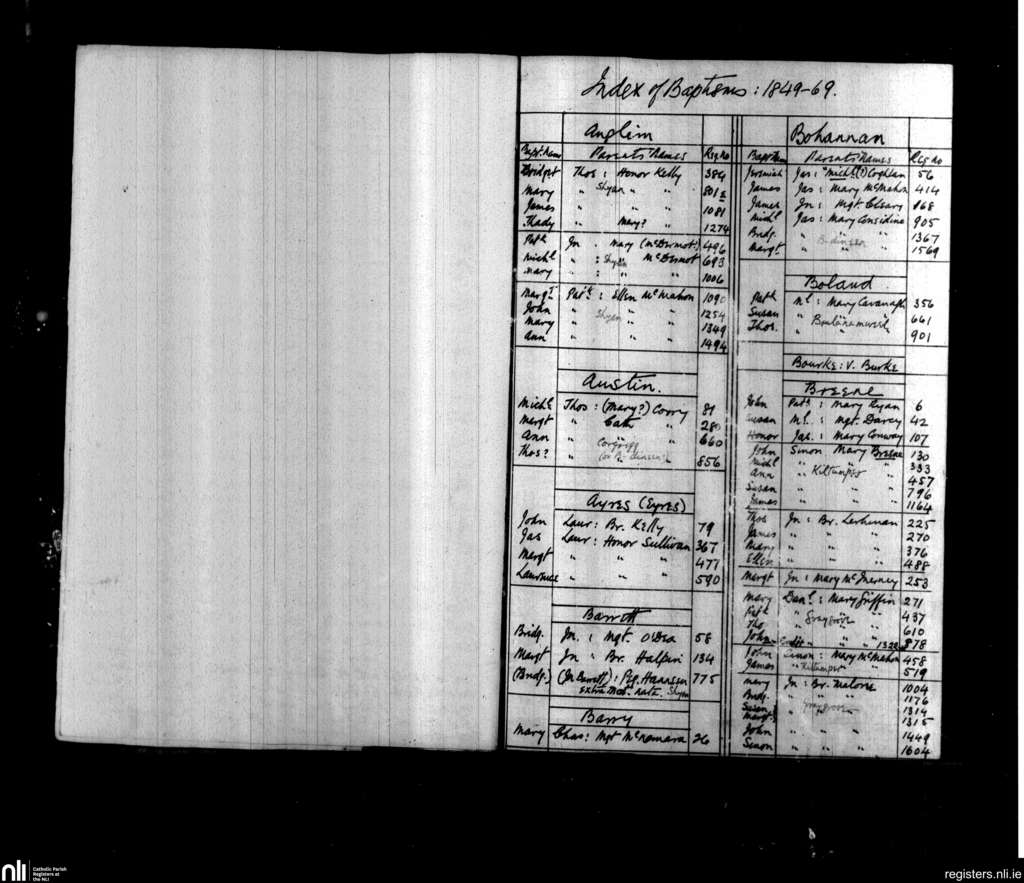 Index of Baptisms: 1849-69.
Anglim
Bapt. Name Parents Names Reg. No
Bridget Thos: Honor Kelly 384
Mary " Shyan " " 801
James " " " 1081
Thady " Mary? " 1274
Patk Jn. Mary (McDermot?) 496
Michl " : Shyan McDermot 693
Mary " : " " 1006
Margt Patk: Ellen McMahon 1090
John " " " 1254
Mary " Shyan " " 1349
Ann " " " 1494
Austin.
Michl Thos: (Mary?) Corry 81
Margt " Cath " 280
Ann " Corgrigg " 660
Thos? " " 856
Ayres (Eyres)
John Laur: Br. Kelly 79
Jas Laur: Honor Sullivan 367
Margt " " " 477
Lawrence " " " 590
Barrott
Bridg. Jn.: Mgt. O'Dea 58
Margt Jn: Br. Halpin 134
(Bridg.) (Jn Barrott): Peg. Hanrssen 775
extra mat. nata. Shyan
Barry
Mary Chas: Mgt McNamara 26
Bohannan
Bapt. Nam Parents Names Reg no
Jeremiah Jas: "Michl(?) Coghlan 56
James Jas: Mary McMahon 414
James Jn: Mgt. Cleary 168
Michl Jas: Mary Considine 905
Bridg. " " " 1367
Margt. " " " 1569
Boland.
Patk Ml: Mary Cavanagh 356
Susan " " " 661
Thos. " " " 901
Bourke: V. Burke
Breene
John Patk: Mary Ryan 6
Susan Ml.: Mgt. Darcy 42
Honor Jas.: Mary Conway 107
John Simon Mary Breene 130
Michl " " " 333
Ann " Kiltumper " 457
Susan " " " 796
James 1164
Thos Jn: Br. Lerhinan 225
James " " " 270
Mary " " " 376
Ellen " " " 488
Margt Jn: Mary McInerney 253
Mary Danl: Mary Griffin 271
Patk " Graygrove " 437
Tho " " " 610
John " " " 1322 878
John Simon: Mary McMahon 458
James " Kiltumper " 519
Mary Jn: Br. Malone 1004
Bridg. " " " 1176
Susan " Graygrove " 1314
Margt. " " 1315
John " " " 1449
Simon " " " 1604
nli
Catholic Parish
Registers at
the NLI
registers.nli.ie